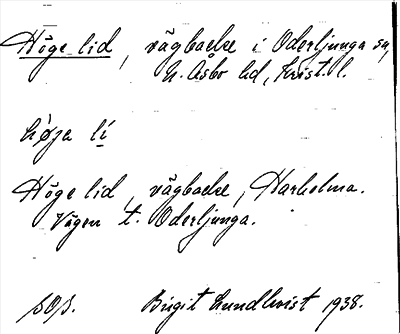 Höge lid, vägbacke i Oderljunga sn,
N. Åsbo hd, Krist. l.
høga lí
Höge lid, vägbacke, Harholma.
Vägen t. Oderljunga.
Birgit Lundkvist 1938.